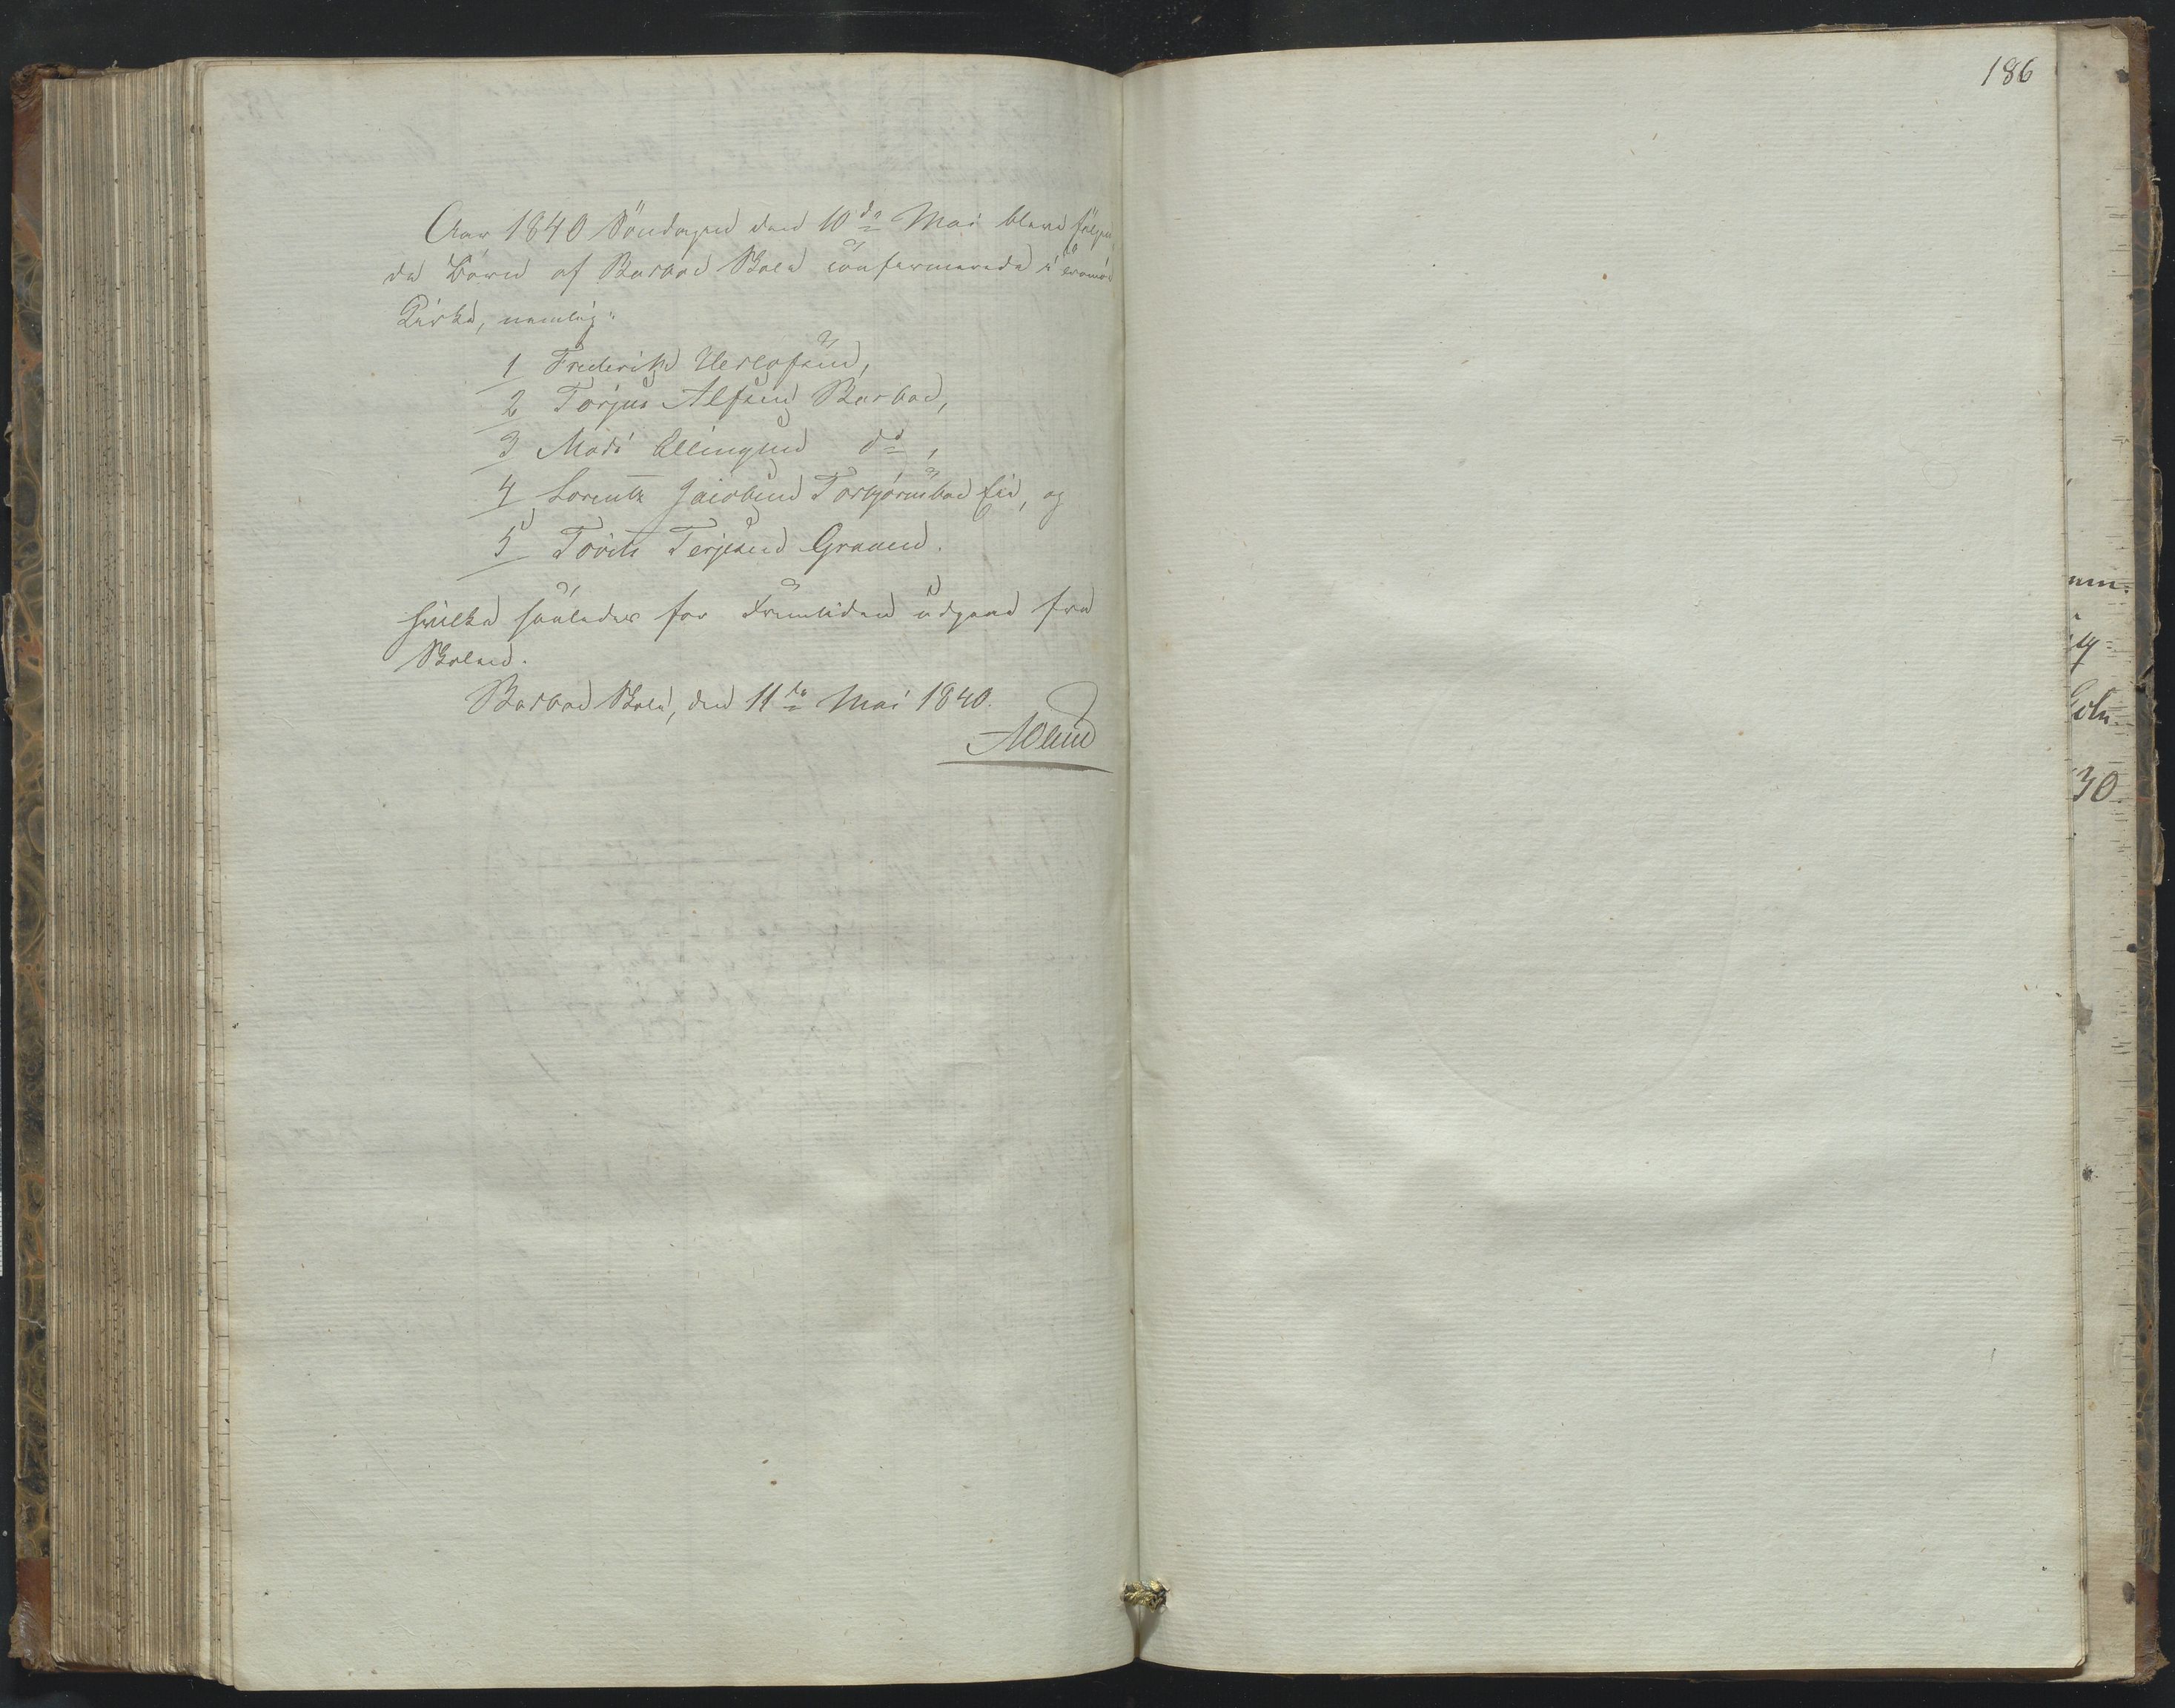 186
Aar 1840 Söndagen den 10de Mai bleve fölgen-
de Börn af Barboe Skole confirmerede i Tromöe
Kirke, nemlig:
1 Frederik Herlofsen,
2 Torjus Alfsen Barboe,
3 Mads Ellingsen do,
4 Lorentz Jacobsen Torbjörnsboe Eie, og
5 Tovits Terjesen Graaen.
hvilke saaledes for Fremtiden udgaae fra
Skolen.
Barboe Skole, den 11te Mai 1840.
30